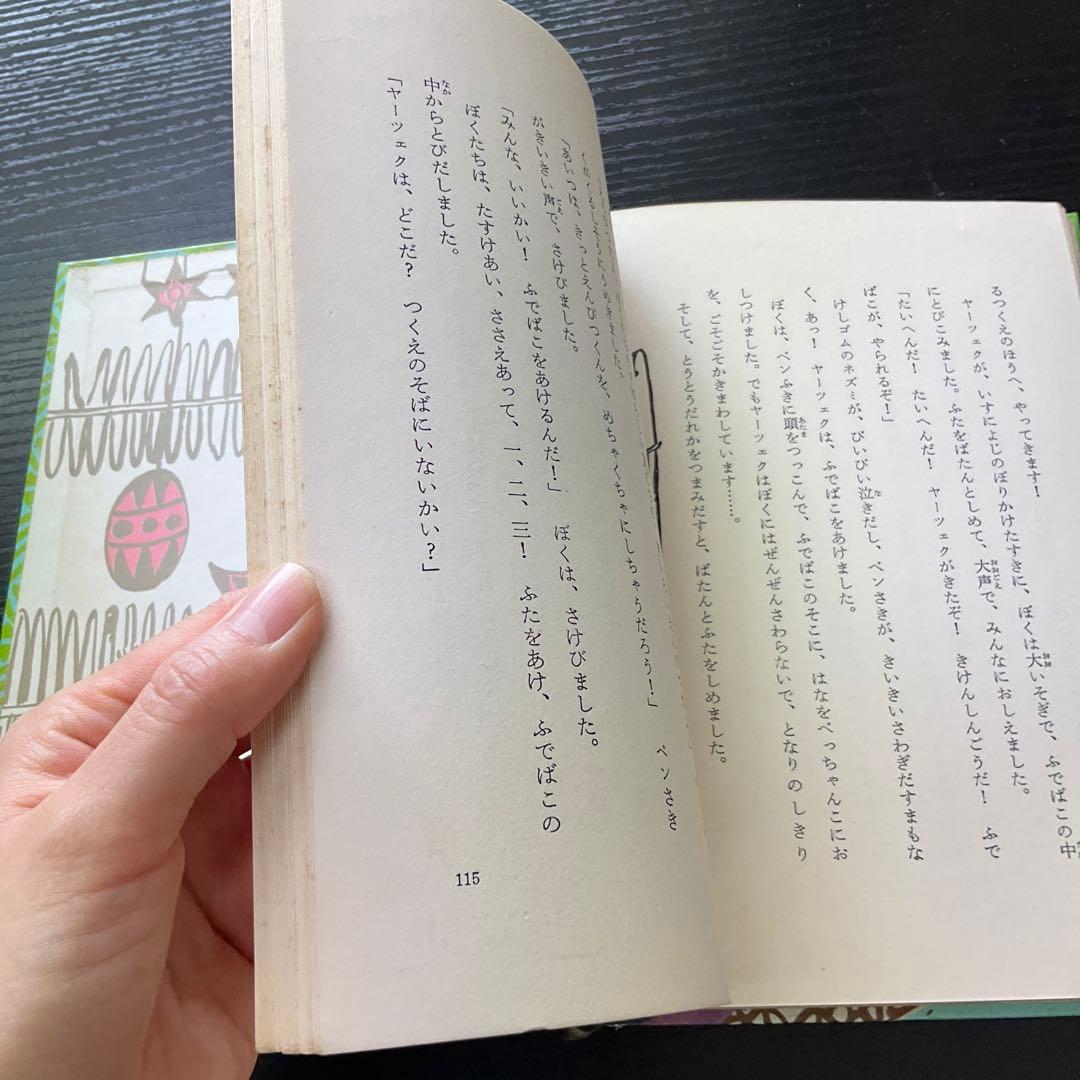 るつくえのほうへ、やってきます！
ヤーツェクが、いすによじのぼりかけたすきに、ぼくは大いそぎで、ふでばこの中
にとびこみました。ふたをばたんとしめて、大声で、みんなにおしえました。
「たいへんだ！　たいへんだ！　ヤーツェクがきたぞ！　きけんしんごうだ！　ふで
ばこが、やられるぞ！」
けしゴムのネズミが、ぴいぴい泣きだし、ペンさきが、きいきいさわぎだすまもな
く、あっ！　ヤーツェクは、ふでばこをあけました。
ぼくは、ペンふきに頭をつっこんで、ふでばこのそこに、はなをぺっちゃんこにお
しつけました。でもヤーツェクはぼくにはぜんぜんさわらないで、となりのしきり
を、ごそごそかきまわしています……。
そして、とうとうだれかをつまみだすと、ばたんとふたをしめました。
うめきました。
「あいつは、きっとえんぴつくんを、めちゃくちゃにしちゃうだろう！」　ペンさき
がきいきい声で、さけびました。
「みんな、いいかい！　ふでばこをあけるんだ！」　ぼくは、さけびました。
ぼくたちは、たすけあい、ささえあって、一、二、三！　ふたをあけ、ふでばこの
中からとびだしました。
「ヤーツェクは、どこだ？　つくえのそばにいないかい？」
115